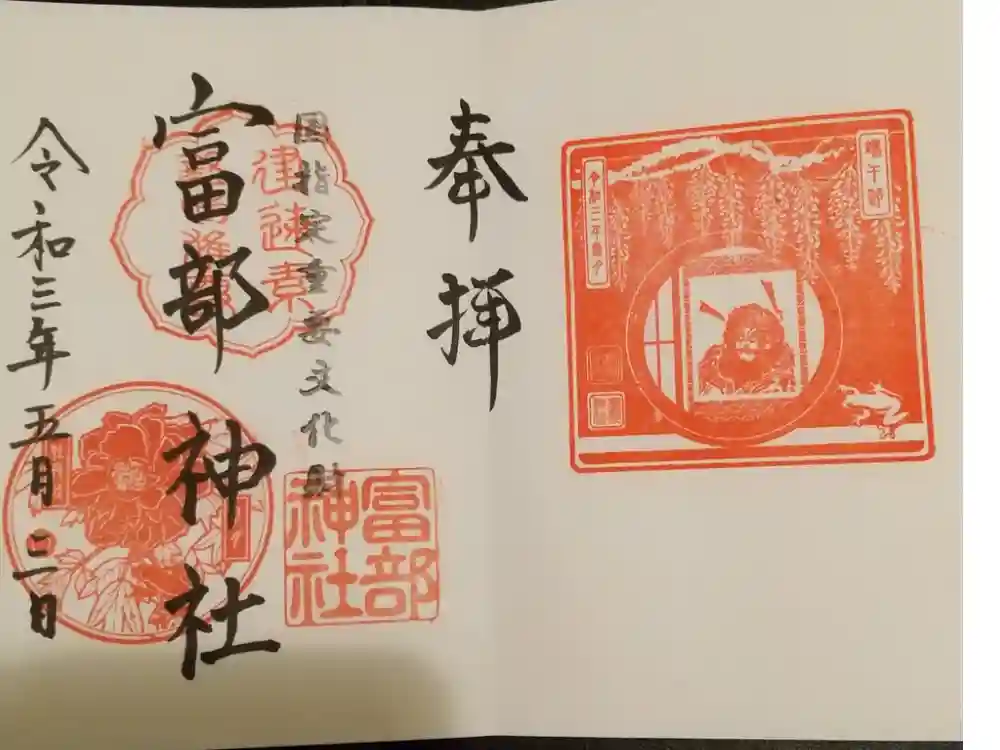 端午節
奉拝
国指定重要文化財
富部神社
富部
神社
建速素
令和三年五月二日